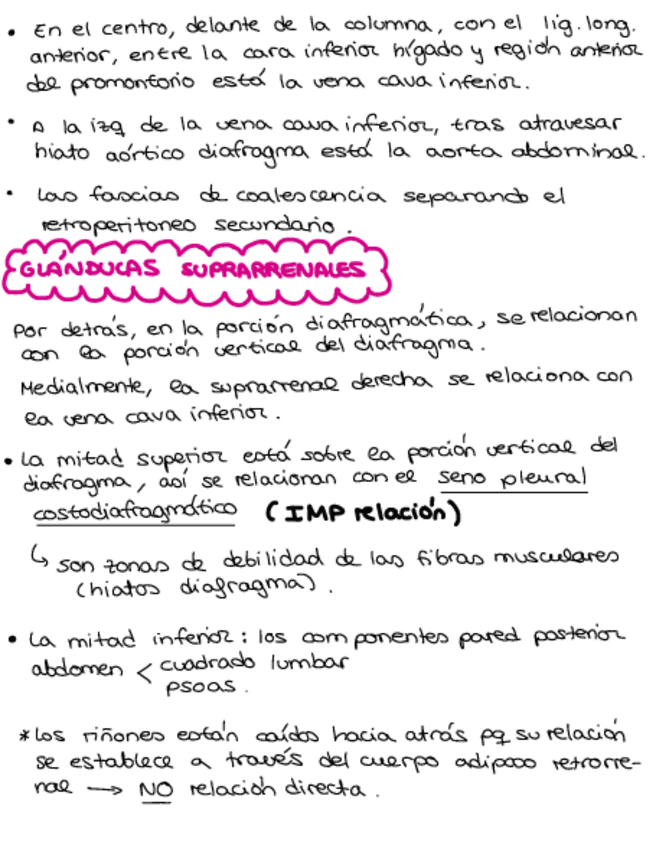 • En el centro, delante de la columna, con el lig. long.
anterior, entre la cara inferior hígado y región anterior
del promontorio está la vena cava inferior.
• A la izq de la vena cava inferior, tras atravesar
hiato aórtico diafragma está la aorta abdominal.
• Las fascias de coalescencia separando el
retroperitoneo secundario.
GLÁNDULAS SUPRARRENALES
Por detrás, en la porción diafragmática, se relacionan
con la porción vertical del diafragma.
Medialmente, la suprarrenal derecha se relaciona con
la vena cava inferior.
• La mitad superior está sobre la porción vertical del
diafragma, así se relacionan con el seno pleural
costodiafragmático (IMP relación)
↳ son zonas de debilidad de las fibras musculares
(hiatos diafragma).
• La mitad inferior: los componentes pared posterior
abdomen < cuadrado lumbar
psoas.
* Los riñones están caídos hacia atrás pq su relación
se establece a través del cuerpo adiposo retrorre-
nal → NO relación directa.